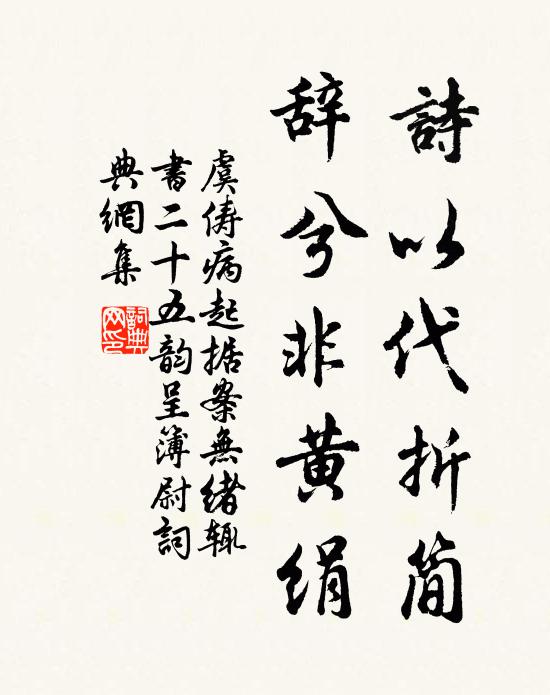 詩以代折简
辞兮非黄绢
虞俦病起据案無绪辄
書二十五韵呈簿尉詞
典網集
詞典网印